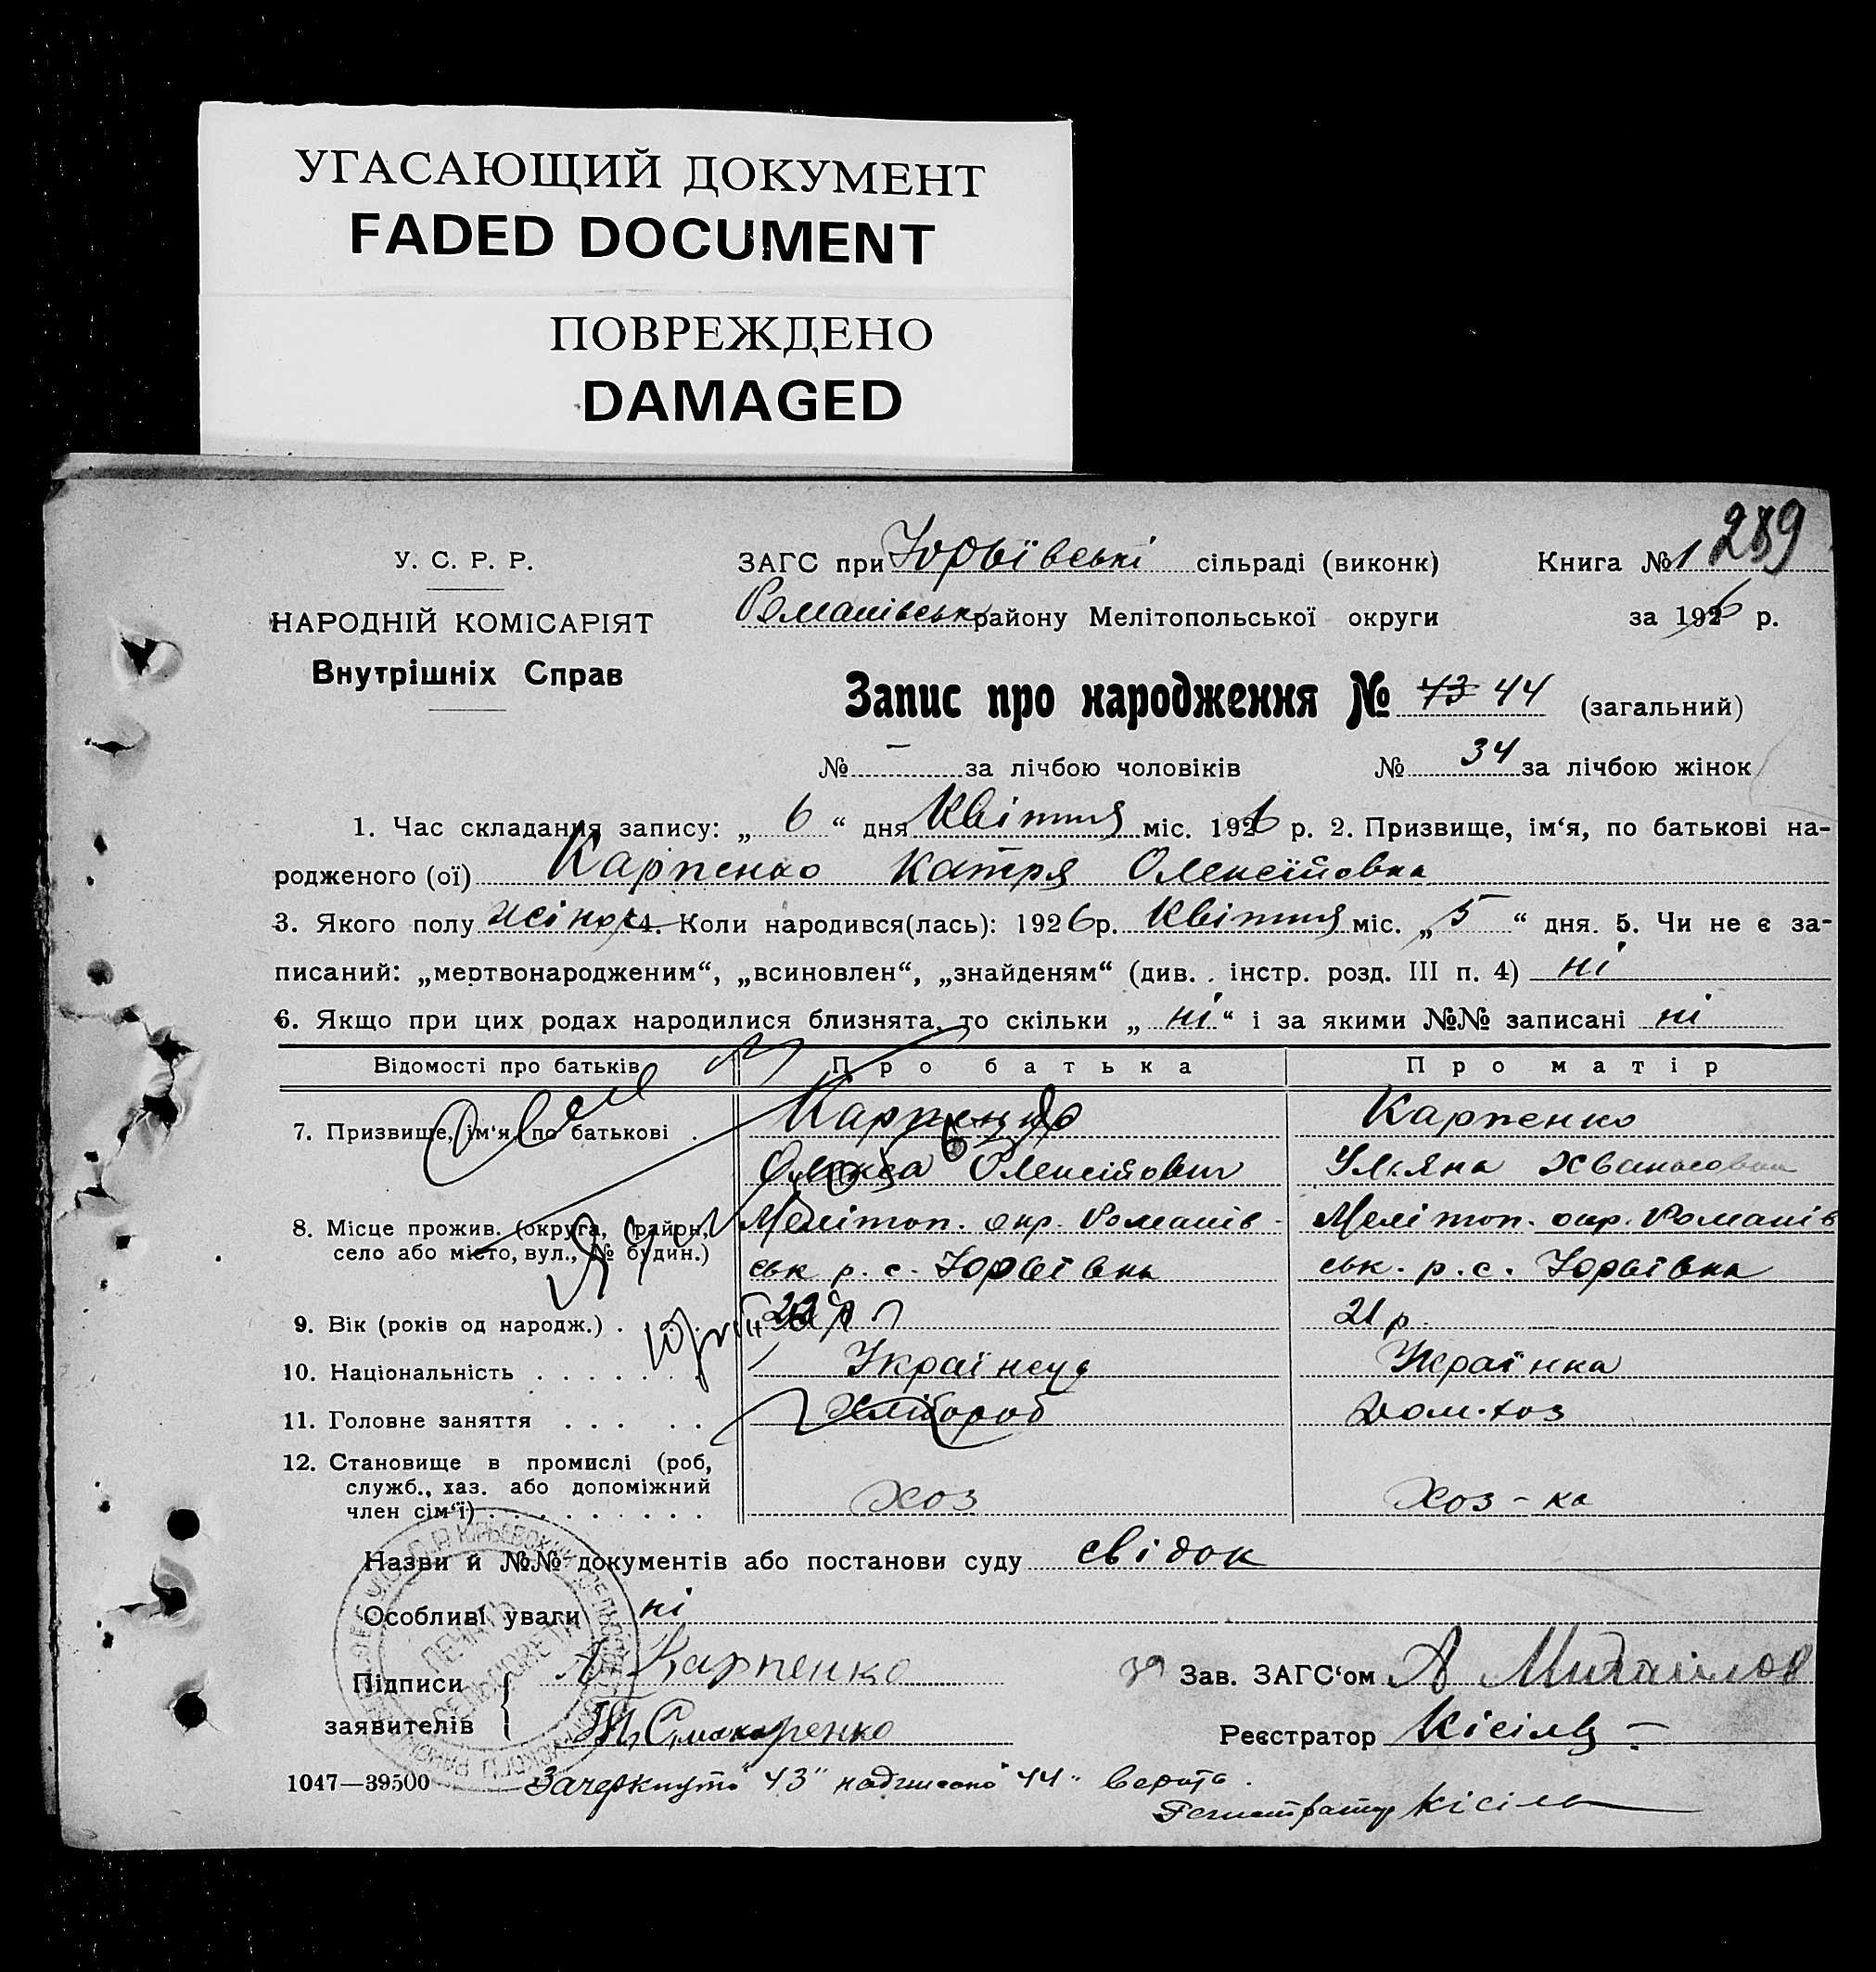 УГАСАЮЩИЙ ДОКУМЕНТ
FADED DOCUMENT
ПОВРЕЖДЕНО
DAMAGED
289
У. С. Р. Р.
НАРОДНІЙ КОМІСАРІЯТ
Внутрішніх Справ
ЗАГС при Юрьївські сільраді (виконк) Книга № 1
Романівськ району Мелітопольської округи за 1926 р.
Запис про народження № 43 44 (загальний)
№ – за лічбою чоловіків № 34 за лічбою жінок
1. Час складання запису: „ 6 “ дня Квітня міс. 1926 р. 2. Призвище, ім‘я, по батькові на-
родженого (ої) Карпенко Катря Олексійовна
3. Якого полу жіноч 4. Коли народився(лась): 1926 р. Квітня міс. „ 5 “ дня. 5. Чи не є за-
писаний: „мертвонародженим“, „всиновлен“, „знайденям“ (див. . інстр. розд. III п. 4) ні
6. Якщо при цих родах народилися близнята, то скільки „ ні “ і за якими №№ записані ні
Відомості про батьків Про батька Про матір
7. Призвище, ім‘я, по батькові . Карпенко Карпенко
Олекса Олексійович Ульяна Хванасовна
8. Місце прожив. (округа, район, Мелітоп. окр. Романів- Мелітоп. окр. Романів
село або місто, вул., № будин.) ськ р. с. Юрьівка ськ. р. с. Юрьівка
9. Вік (років од народж.) . 21 р.
10. Національність . . . . . . . Українець Українка
11. Головне заняття . . . . . Хлібороб Дом. хоз
12. Становище в промислі (роб,
служб., хаз. або допоміжний
член сім‘ї) . . . . . . . . . . Хоз Хоз-ка
Назви й №№ документів або постанови суду свідок
Особливі уваги ні
Підписи А Карпенко за Зав. ЗАГС‘ом А Михайлов
заявителів Реєстратор Кісіль
1047—39500 Зачеркнуто "43" надписано "44" верить.
Кісіль
ПЕЧАТЬ
СЕЛЬСОВЕТА